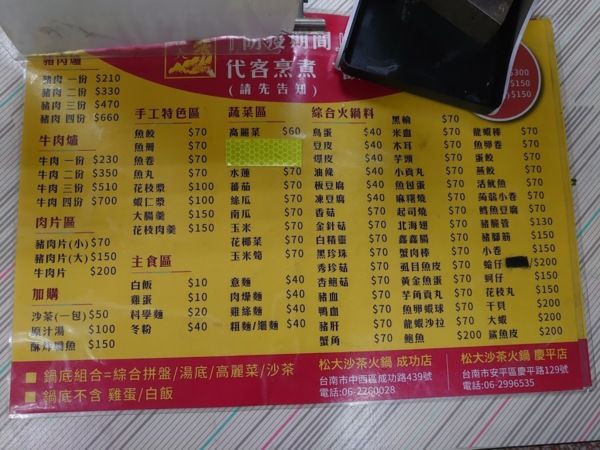 『防疫期間』
代客烹煮
(請先告知)
$300
$150
$150
豬肉爐
豬肉 一份 $210
豬肉 二份 $330
豬肉 三份 $470
豬肉 四份 $660
牛肉爐
牛肉 一份 $230
牛肉 二份 $350
牛肉 三份 $510
牛肉 四份 $700
肉片區
豬肉片(小) $70
豬肉片(大) $150
牛肉片 $200
加購
沙茶(一包) $50
原汁湯 $100
酥炸魠魚 $150
手工特色區
魚餃 $70
魚卷 $70
魚丸 $70
花枝漿 $100
蝦仁漿 $100
大腸羹 $150
花枝肉羹 $150
主食區
白飯 $10
雞蛋 $10
科學麵 $20
冬粉 $40
蔬菜區
高麗菜 $60
水蓮 $70
蕃茄 $70
絲瓜 $70
南瓜 $70
玉米 $70
花椰菜 $70
玉米筍 $70
意麵 $40
肉燥麵 $40
雞絲麵 $40
粗麵/細麵 $40
綜合火鍋料
鳥蛋 $40
豆皮 $40
爆皮 $40
油條 $40
板豆腐 $40
凍豆腐 $40
香菇 $70
金針菇 $70
白精靈 $70
黑珍珠 $70
秀珍菇 $70
杏鮑菇 $70
豬血 $70
鴨血 $70
豬肝 $70
蟹角 $70
黑輪 $70
米血 $70
木耳 $70
芋頭 $70
小貢丸 $70
魚包蛋 $70
麻糬燒 $70
起司燒 $70
北海翅 $70
鑫鑫腸 $70
蟹肉棒 $70
虱目魚皮 $70
黃金魚蛋 $70
芋角貢丸 $70
魚卵蝦球 $70
龍蝦沙拉 $70
鮑魚 $200
龍蝦棒 $70
魚卵卷 $70
蛋餃 $70
燕餃 $70
活魷魚 $70
蒟蒻小卷 $70
鱈魚豆腐 $70
豬腸管 $130
豬腳筋 $150
小卷 $150
蛤仔 /$200
蚵仔 $150
花枝丸 $150
干貝 $200
大蝦 $200
鯊魚皮 $200
■ 鍋底組合=綜合拼盤/湯底/高麗菜/沙茶
■ 鍋底不含 雞蛋/白飯
松大沙茶火鍋 成功店
台南市中西區成功路439號
電話:06-2260028
松大沙茶火鍋 慶平店
台南市安平區慶平路129號
電話:06-2996535